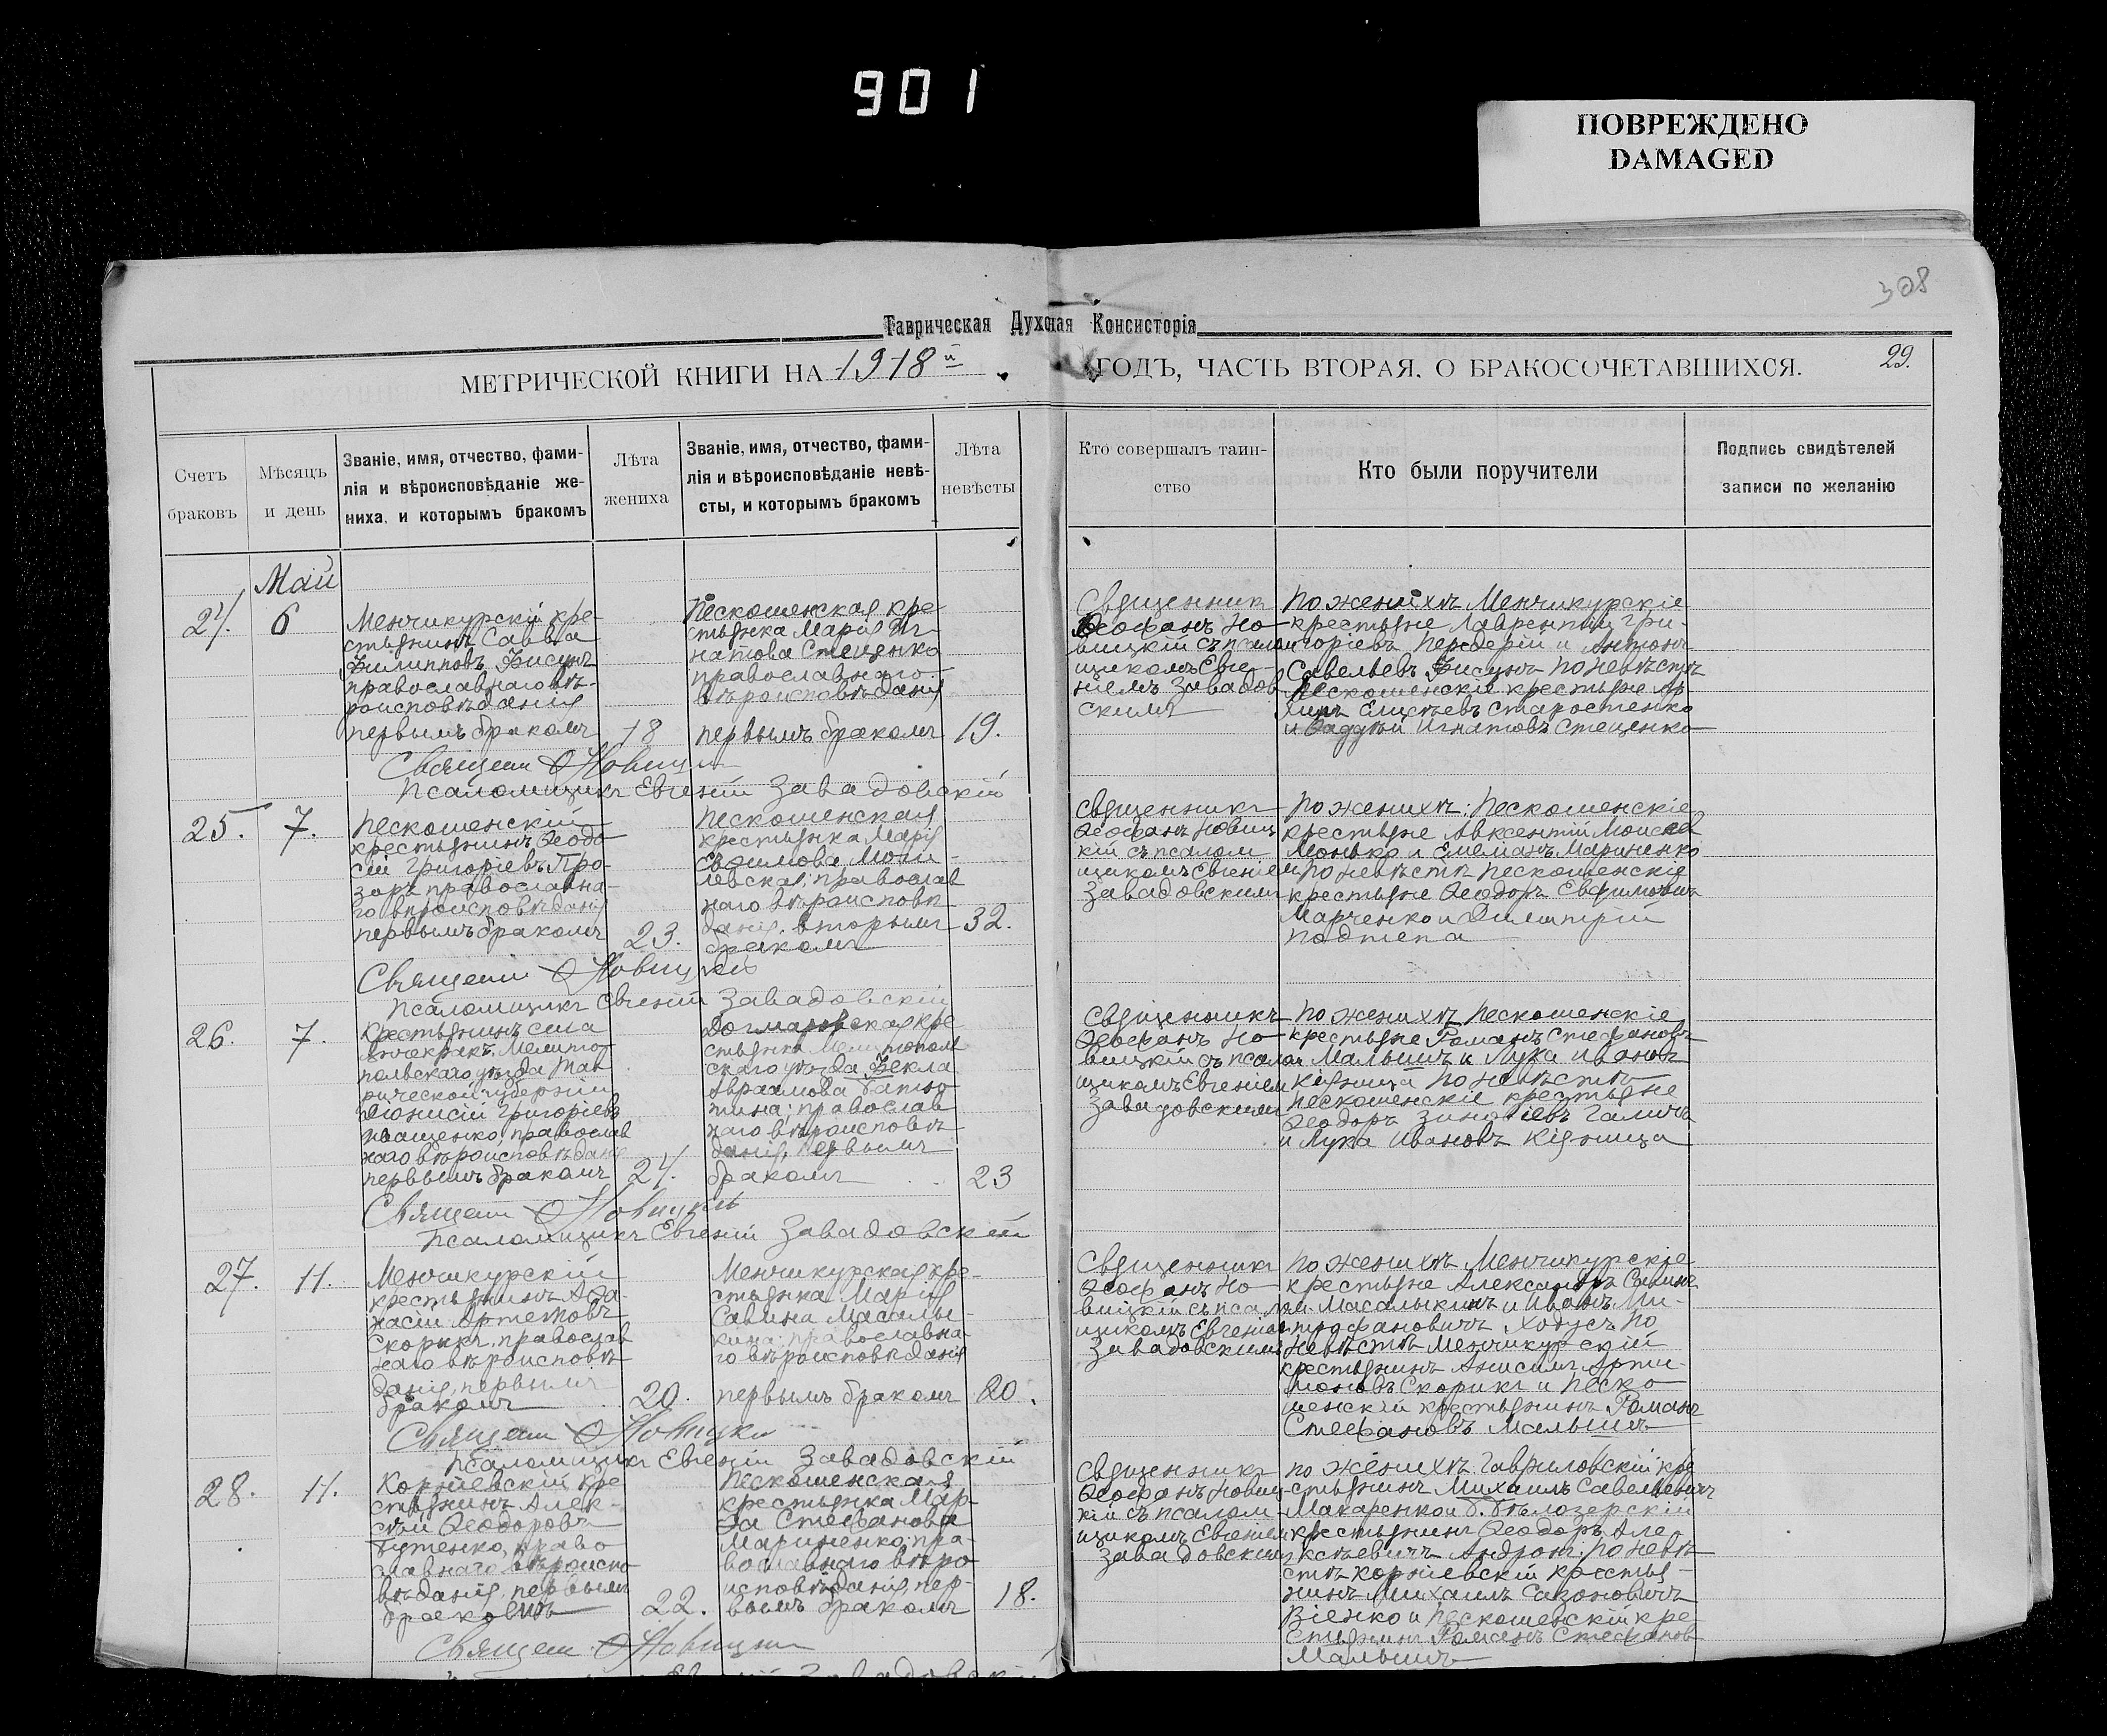 901
ПОВРЕЖДЕНО
DAMAGED
308
Таврическая Духовная Консисторія
МЕТРИЧЕСКОЙ КНИГИ НА 1918й ГОДЪ, ЧАСТЬ ВТОРАЯ, О БРАКОСОЧЕТАВШИХСЯ.
29.
Счетъ
браковъ
Мѣсяцъ
и день
Званіе, имя, отчество, фами-
лія и вѣроисповѣданіе же-
ниха, и которымъ бракомъ
Лѣта
жениха
Званіе, имя, отчество, фами-
лія и вѣроисповѣданіе невѣ-
сты, и которымъ бракомъ
Лѣта
невѣсты
Кто совершалъ таин-
ство
Кто были поручители
Подпись свидѣтелей
записи по желанію
Май
24.
6
Менчикурскій кре-
стьянинъ Савва
Филипповъ Фисунъ
православнаго вѣ-
роисповѣданія
первымъ бракомъ
18
Пескошенская кре
стьянка Марія Иг-
натова Стеценко
православнаго
вѣроисповѣданія
первымъ бракомъ
19.
Священникъ
Ѳеофанъ Но-
вицкій съ псалом
щикомъ Евге-
ніемъ Завадов
скимъ
По женихѣ Менчикурскіе
крестьяне Лаврентій Гри-
горіевъ Передерій и Антонъ
Савельевъ Фисунъ по невѣстѣ
Пескошенскіе крестьяне
Елисѣевъ Старостенко
и Ѳаддѣй Игнатовъ Стеценко
Священ Ѳ Новицкій
Псаломщикъ Евгеній Завадовскій
25.
7.
Пескошенскій
крестьянинъ Ѳеодо
сій Григоріевъ Про-
зоръ православна-
го вѣроисповѣданія
первымъ бракомъ
23.
Пескошенская
крестьянка Марія
Евфимова Моги-
левская; православ
наго вѣроисповѣ
данія, вторымъ
бракомъ
32.
Священникъ
Ѳеофанъ Новиц
кій съ псалом
щикомъ Евгеніем
Завадовскимъ
По женихѣ: Пескошенскіе
крестьяне Авксентій Моисеев
Монько и Емеліанъ Мариненко
По невѣстѣ Пескошенскіе
крестьяне Ѳеодоръ Евфимовичъ
Марченко и Димитрій
Подтепа
Священ Ѳ Новицкій
Псаломщикъ Евгеній Завадовскій
26.
7.
Крестьянинъ села
Янчекракъ, Мелито-
польскаго уѣзда Тав
рической губерніи
Діонисій Григоріевъ
Иващенко, православ
наго вѣроисповѣданія
первымъ бракомъ
24.
Догмаровская кре
стьянка Мелитополь
скаго уѣзда Ѳекла
Авраамова Батю-
тина; православ
наго вѣроисповѣ
данія, первымъ
бракомъ
23
Священникъ
Ѳеофанъ Но-
вицкій съ псалом
щикомъ Евгеніем
Завадовскимъ
По женихѣ Пескошенскіе
крестьяне Романъ Стефановъ
Малышъ и Лука Ивановъ
Кіяница по невѣстѣ
Пескошенскіе крестьяне
Ѳеодоръ Зиновіевъ Галичъ
и Лука Ивановъ Кіяница
Священ Ѳ Новицкій
Псаломщикъ Евгеній Завадовскій
27.
11.
Менчикурскій
крестьянинъ Аѳа-
насій Артемовъ
Скорикъ, православ
наго вѣроисповѣ
данія, первымъ
бракомъ
20.
Менчикурская кре-
стьянка Марія
Савина Масалы-
кина; православна-
го вѣроисповѣданія
первымъ бракомъ
20.
Священникъ
Ѳеофанъ Но-
вицкій съ псалом
щикомъ Евгеніем
Завадовскимъ
По женихѣ Менчикурскіе
крестьяне Александръ Савинъ
Масалыкинъ и Иванъ Ми-
трофановичъ Ходусъ По
невѣстѣ Менчикурскій
крестьянинъ Анисимъ Арти-
моновъ Скорикъ и Песко
шенскій крестьянинъ Романъ
Стефановъ Малышъ
Священ Ѳ Новицкій
Псаломщикъ Евгеній Завадовскій
28.
11.
Корніевскій кре
стьянинъ Алек-
сѣй Ѳеодоровъ
Бутенко, право
славнаго вѣроиспо
вѣданія, первымъ
бракомъ
22.
Пескошенская
крестьянка Мар-
ѳа Стефанова
Мариненко; пра-
вославнаго вѣро
исповѣданія, пер-
вымъ бракомъ
18.
Священникъ
Ѳеофанъ Новиц
кій съ псалом
щикомъ Евгеніем
Завадовскимъ
по женихѣ: Гавриловскій кре
стьянинъ Михаилъ Савельевичъ
Макаренко и Б. Бѣлозерскій
крестьянинъ Ѳеодоръ Але
ксѣевичъ Андрощ: По невѣ
стѣ Корніевскій крестья-
нинъ Михаилъ Сазоновичъ
Віенко и Пескошенскій кре
стьянинъ Романъ Стефанов
Малышъ
Священ Ѳ Новицкій
Евгеній Завадовскій